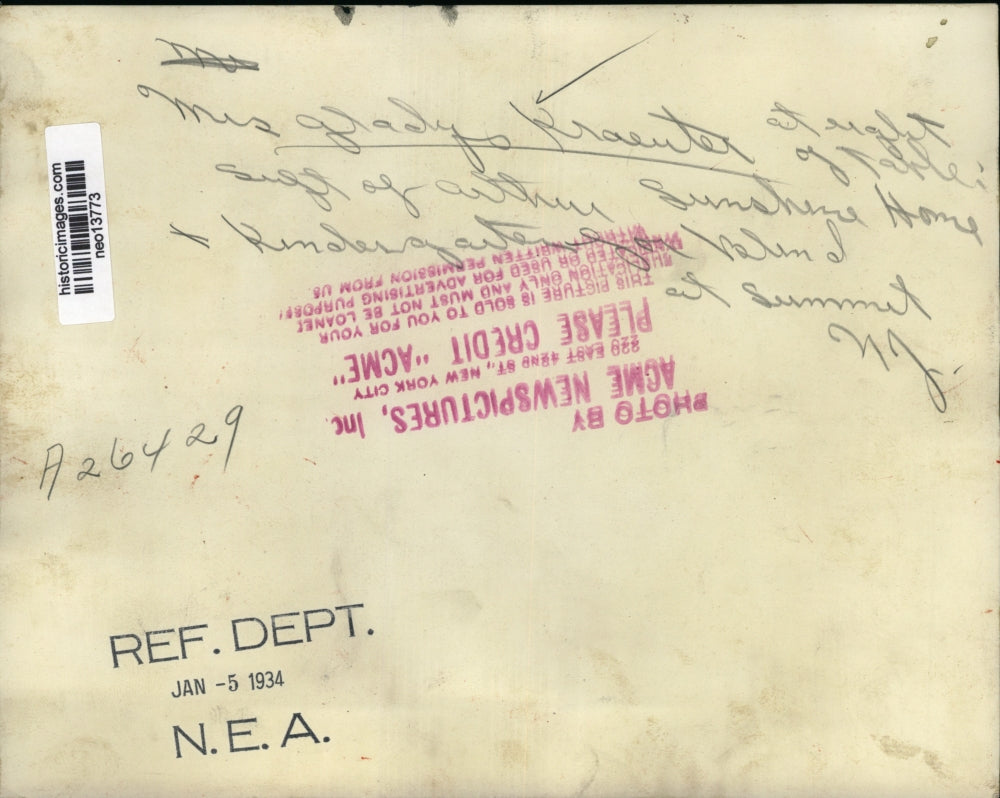 Mrs
Mrs Gladys Kraeuter at right
of table:
Supt of Arthur Sunshine Home
x Kindergarten for Blind
at Summit
NJ.
historicimages.com
neo13773
PHOTO BY
ACME NEWSPICTURES, Inc.
220 EAST 42ND ST., NEW YORK CITY
PLEASE CREDIT "ACME"
THIS PICTURE IS SOLD TO YOU FOR YOUR
PUBLICATION ONLY AND MUST NOT BE LOANED
OR USED FOR ADVERTISING PURPOSES
WITHOUT WRITTEN PERMISSION FROM US
A26429
REF. DEPT.
JAN -5 1934
N.E.A.